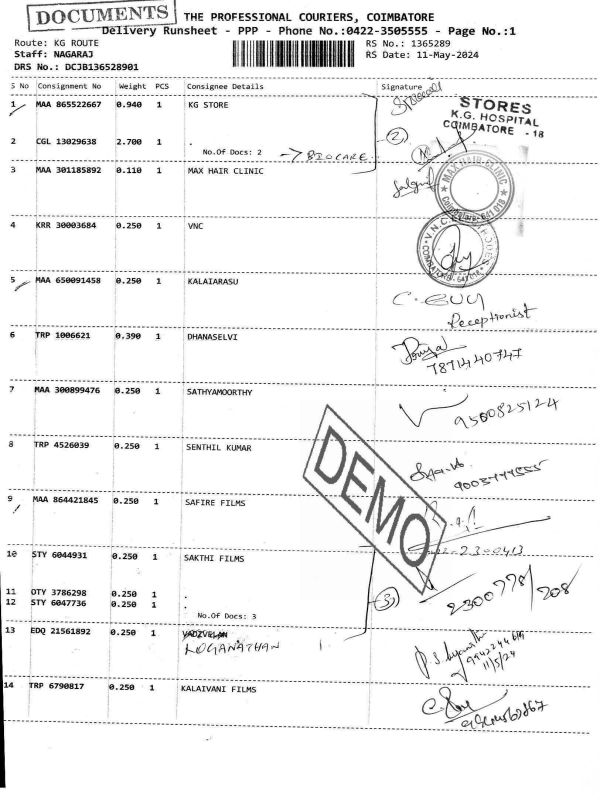 DOCUMENTS
THE PROFESSIONAL COURIERS, COIMBATORE
Delivery Runsheet - PPP - Phone No.:0422-3505555 - Page No.:1
Route: KG ROUTE
RS No.: 1365289
Staff: NAGARAJ
RS Date: 11-May-2024
DRS No.: DCJB136528901
S No Consignment No Weight PCS Consignee Details Signature
1 MAA 865522667 0.940 1 KG STORE
STORES
K.G. HOSPITAL
COIMBATORE - 18
2 CGL 13029638 2.700 1 .
No.Of Docs: 2 → BIOCARE
2
3 MAA 301185892 0.110 1 MAX HAIR CLINIC
MAX HAIR CLINIC
Coimbatore-641 018
4 KRR 30003684 0.250 1 VNC
V.N.C.
COIMBATORE - 641 018
5 MAA 650091458 0.250 1 KALAIARASU
Receptionist
6 TRP 1006621 0.390 1 DHANASELVI
7871440747
7 MAA 300899476 0.250 1 SATHYAMOORTHY
9500825124
8 TRP 4526039 0.250 1 SENTHIL KUMAR
DEMO
9 MAA 864421845 0.250 1 SAFIRE FILMS
10 STY 6044931 0.250 1 SAKTHI FILMS
11 OTY 3786298 0.250 1 .
12 STY 6047736 0.250 1 .
No.Of Docs: 3
3
13 EDQ 21561892 0.250 1 VADIVELAN
LOGANATHAN
11/5/24
14 TRP 6790817 0.250 1 KALAIVANI FILMS